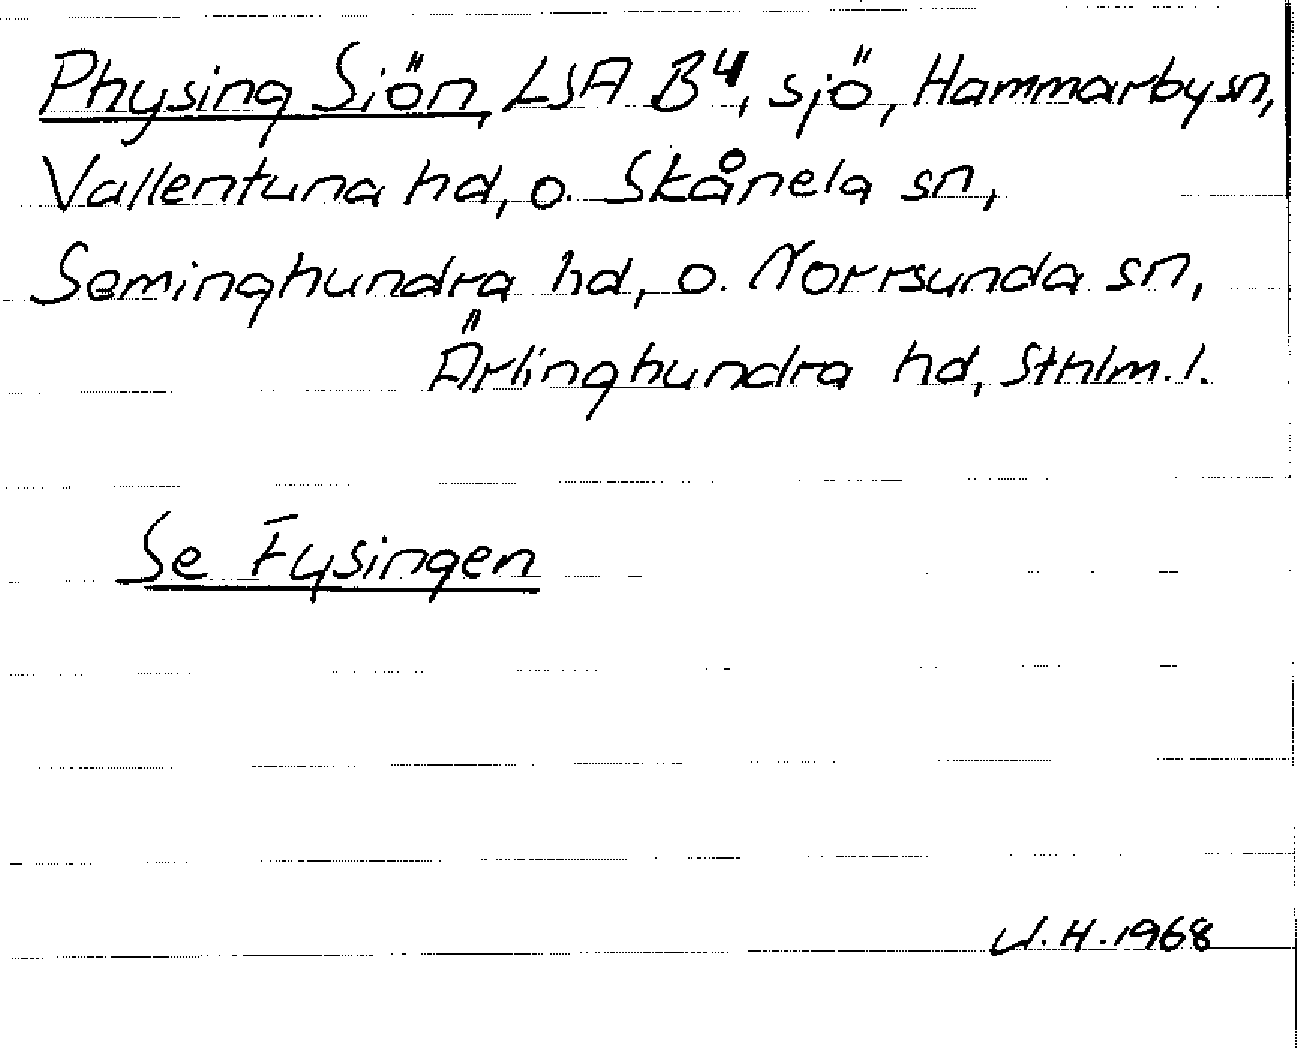 Physing Siön, LSA B4, sjö, Hammarby sn,
Vallentuna hd, o. Skånela sn,
Seminghundra hd, o. Norrsunda sn,
Ärlinghundra hd, Sthlm. l.
Se Fysingen
J.H. 1968